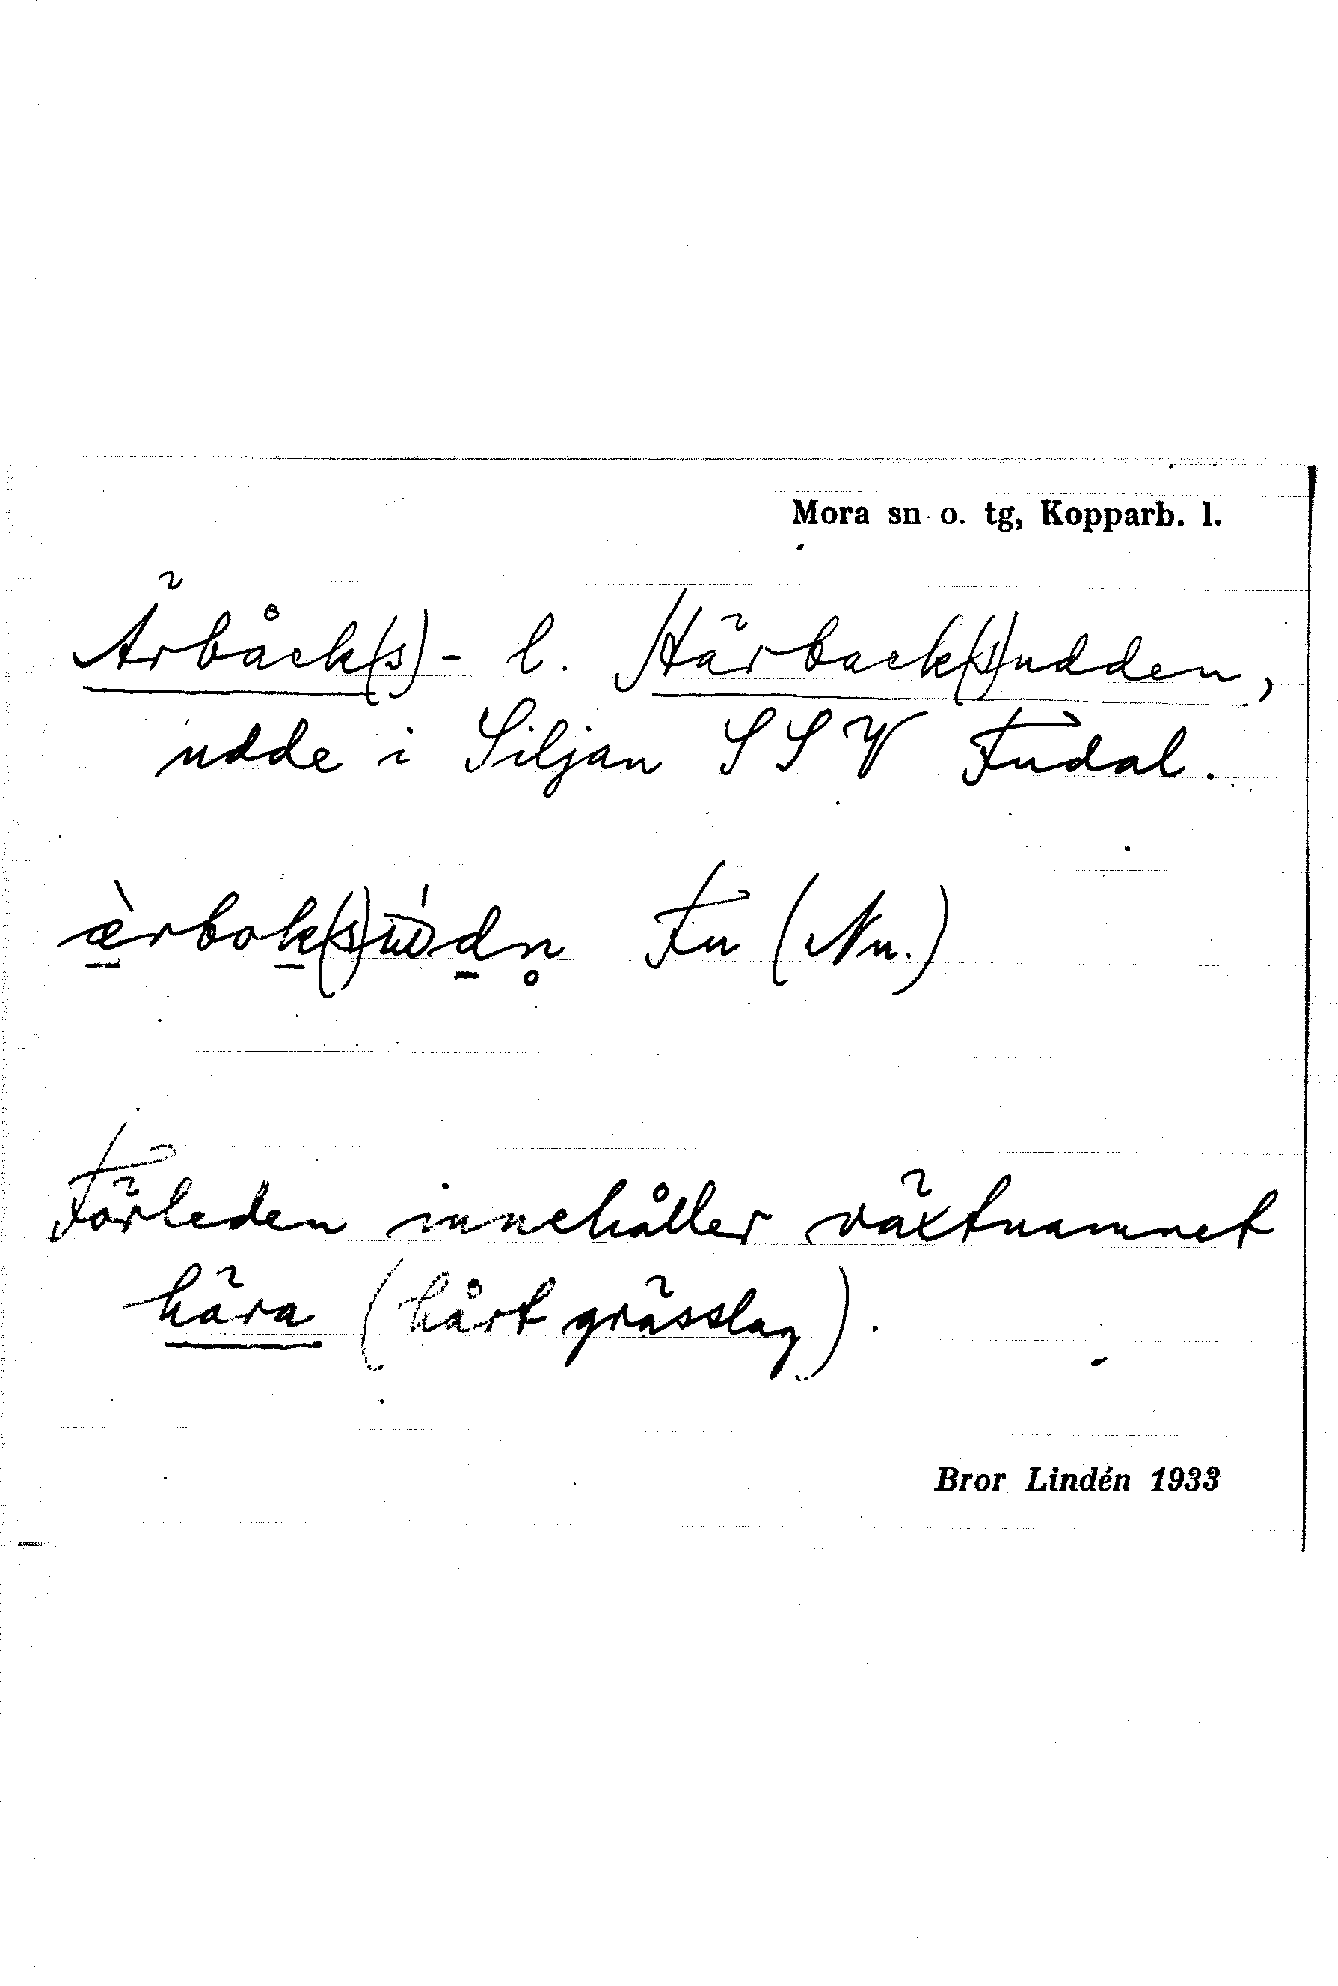 Mora sn o. tg, Kopparb. l.
Ärbåck(s)- l. Härback(s)udden,
udde i Siljan SSV Fudal.
ærbok(s)uòdn̥ Fu (Nu.)
Förleden innehåller växtnamnet
hära (hårt grässlag).
Bror Lindén 1933